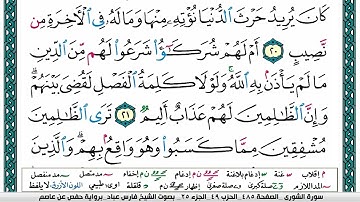 كَانَ يُرِيدُ حَرْثَ ٱلدُّنْيَا نُؤْتِهِۦ مِنْهَا وَمَا لَهُۥ فِى ٱلْـَٔاخِرَةِ مِن
نَّصِيبٍ ٢٠ أَمْ لَهُمْ شُرَكَـٰٓؤُا۟ شَرَعُوا۟ لَهُم مِّنَ ٱلدِّينِ
مَا لَمْ يَأْذَنۢ بِهِ ٱللَّهُ وَلَوْلَا كَلِمَةُ ٱلْفَصْلِ لَقُضِىَ بَيْنَهُمْ
وَإِنَّ ٱلظَّـٰلِمِينَ لَهُمْ عَذَابٌ أَلِيمٌ ٢١ تَرَى ٱلظَّـٰلِمِينَ
مُشْفِقِينَ مِمَّا كَسَبُوا۟ وَهُوَ وَاقِعٌۢ بِهِمْ وَٱلَّذِينَ
سورة الشورى . الصفحة ٤٨٥ . الحزب ٤٩ . الجزء ٢٥ . بصوت الشيخ فارس عباد . برواية حفص عن عاصم